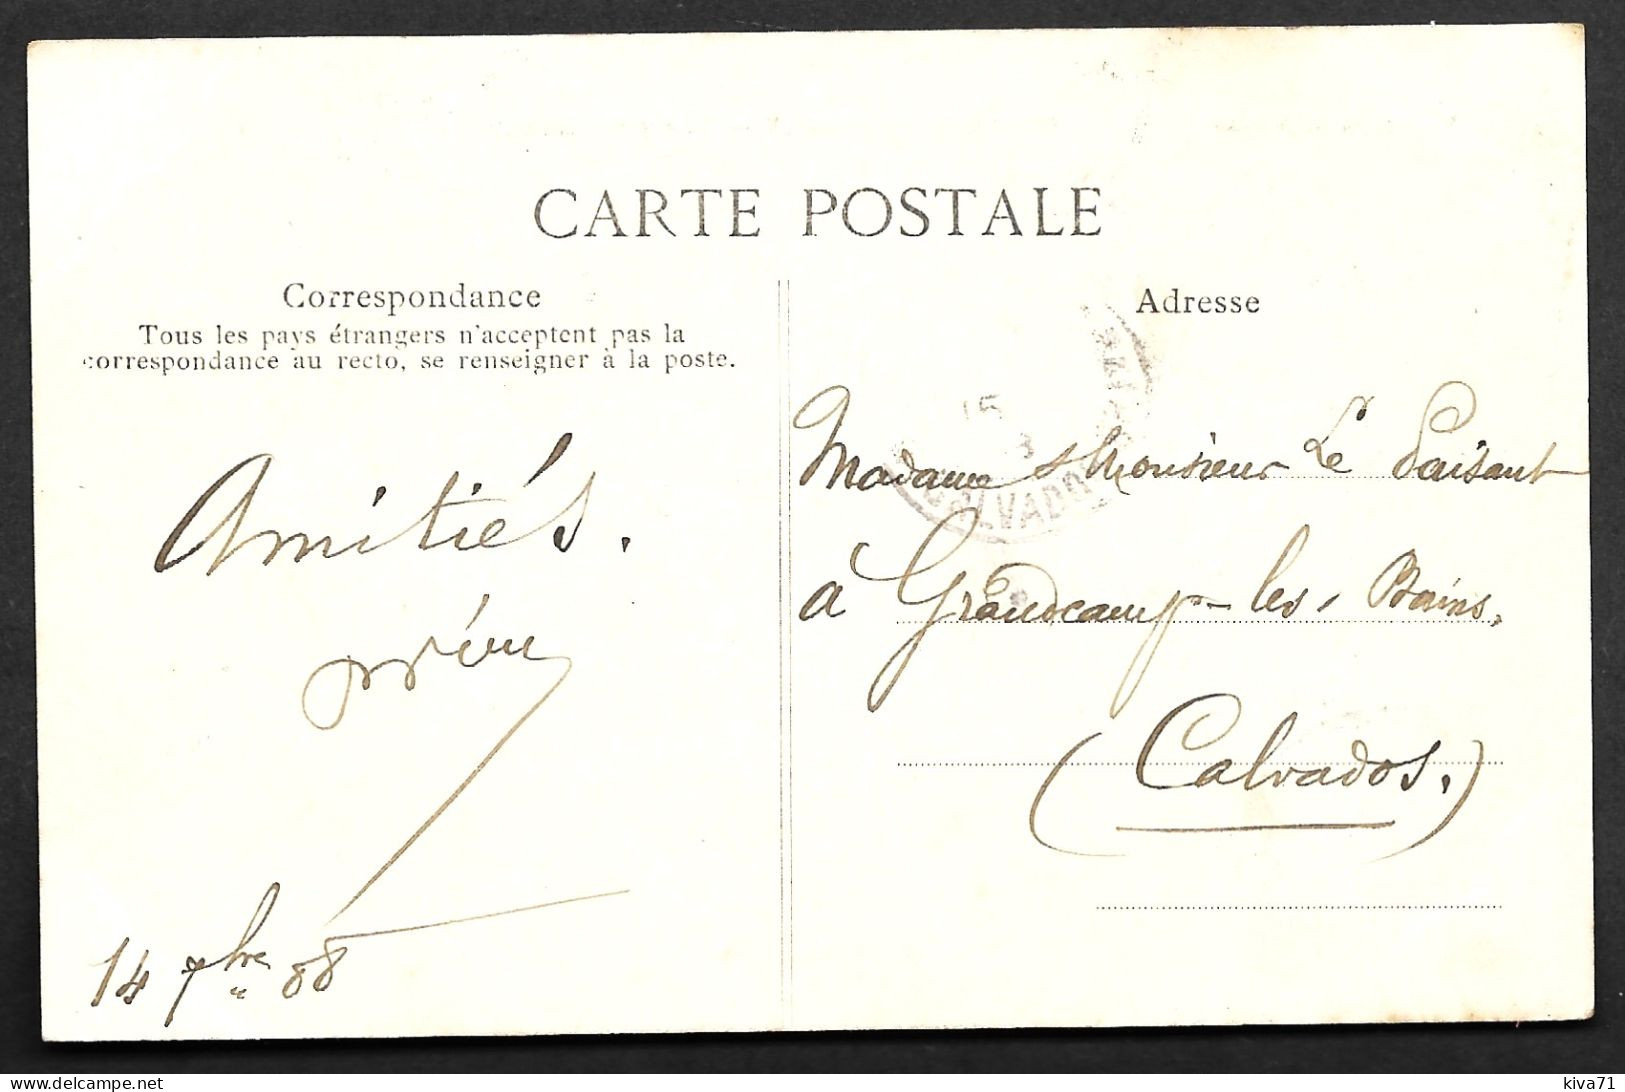 CARTE POSTALE
Correspondance
Tous les pays étrangers n'acceptent pas la
correspondance au recto, se renseigner à la poste.
Amitiés.
14 7bre 08
Adresse
15
CALVADOS
Madame & Monsieur Le Paisant
à Grandcamp-les-Bains,
(Calvados.)
delcampe.net
kiva71